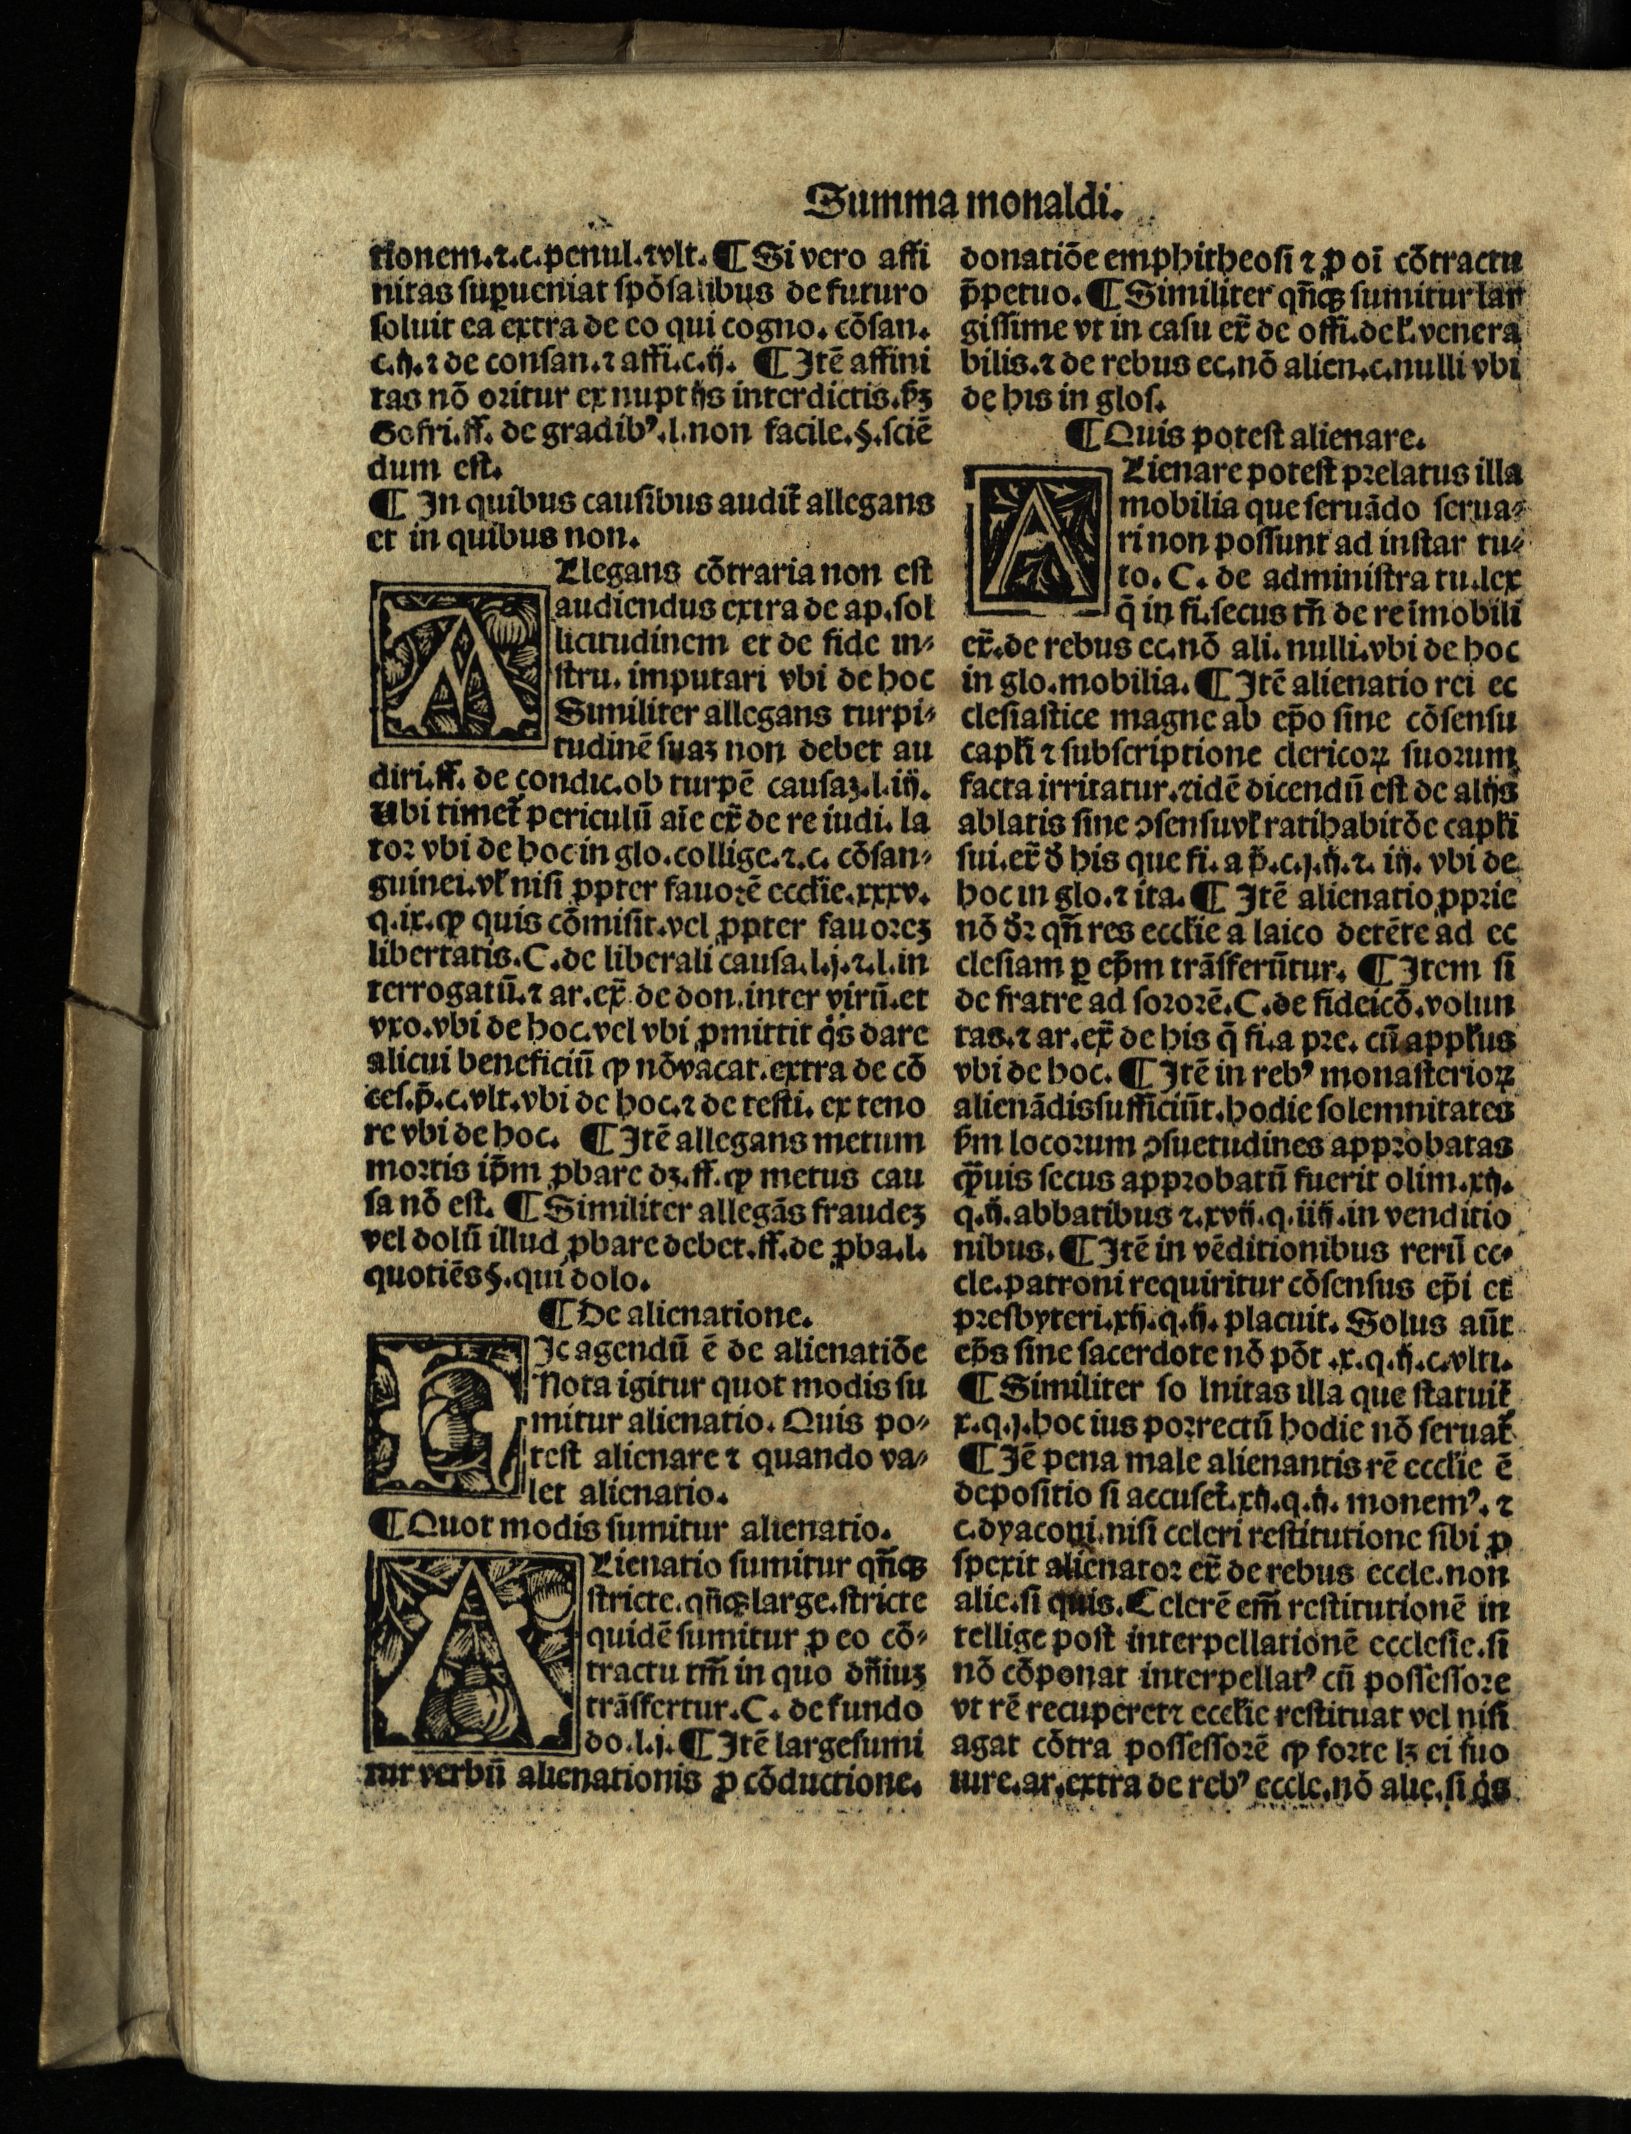 Summa monaldi.
tionem.⁊.c.penul.⁊vlt. ¶ Si vero affi
nitas suꝑueniat spōsalibus de futuro
soluit ea extra de eo qui cogno. cōsan.
c.ij.⁊ de consan.⁊ affi.c.ij. ¶ Itē affini
tas nō oritur ex nuptijs interdictis.ẜꝫ
Gofri.ff. de gradibꝰ.l.non facile.§.sciē
dum est.
¶ In quibus causibus audit̃ allegans
et in quibus non.
ALlegans cōtraria non est
audiendus extra de ap.sol
licitudinem et de fide in⸗
stru. imputari vbi de hoc
Similiter allegans turpi⸗
tudinē suaꝫ non debet au
diri.ff. de condic.ob turpē causaꝫ.l.iij.
Ubi timet̃ periculū aīe ex̄ de re iudi. la
tor vbi de hoc in glo.collige.⁊.c. cōsan⸗
guinei.vł nisi ꝓpter fauorē ecclīe.xxxv.
q.ix.ꝙ quis cōmisit.vel ꝓpter fauoreꝫ
libertatis.C.de liberali causa.l.j.⁊.l.in
terrogatū.⁊ ar.ex̄ de don.inter virū.et
vxo.vbi de hoc.vel vbi ꝓmittit q̇s dare
alicui beneficiū ꝙ nōvacat.extra de cō
ces.p̄.c.vlt.vbi de hoc.⁊ de testi. ex teno
re vbi de hoc. ¶ Itē allegans metum
mortis ip̄m ꝓbare dꝫ.ff.ꝙ metus cau
sa nō est. ¶ Similiter allegās fraudeꝫ
vel dolū illud ꝓbare debet.ff.de ꝓba.l.
quotiēs§.qui dolo.
¶ De alienatione.
HIc agendū ē de alienatiōe
Nota igitur quot modis su
mitur alienatio. Quis po⸗
test alienare ⁊ quando va⸗
let alienatio.
¶ Quot modis sumitur alienatio.
ALienatio sumitur qn̄qꝫ
stricte.qn̄qꝫ large.stricte
quidē sumitur ꝓ eo cō⸗
tractu tm̄ in quo dn̄iuꝫ
trāsfertur.C. de fundo
do.l.j. ¶ Itē largesumi
tur verbū alienationis ꝓ cōductione.
donatiōe emphitheosi ⁊ ꝓ oī cōtractu
p̄petuo. ¶ Similiter qn̄qꝫ sumitur lar
gissime vt in casu ex̄ de offi.deł.venera
bilis.⁊ de rebus ec.nō alien.c.nulli vbi
de his in glos.
¶ Quis potest alienare.
ALienare potest prelatus illa
mobilia que seruādo serua⸗
ri non possunt ad instar tu⸗
to. C. de administra tu.lex
q̄ in fi.secus tn̄ de re īmobili
ex̄.de rebus ec.nō ali. nulli.vbi de hoc
in glo.mobilia. ¶ Itē alienatio rei ec
clesiastice magne ab ep̄o sine cōsensu
capłi ⁊ subscriptione clericoꝝ suorum
facta irritatur.⁊idē dicendū est de alijs
ablatis sine ꝯsensuvł ratihabitōe capłi
sui.ex̄ ð his que fi. a p̄.c.j.ij.⁊. iij. vbi de
hoc in glo.⁊ ita. ¶ Itē alienatio ꝓprie
nō dr̄ qn̄ res ecclīe a laico detēte ad ec
clesiam ꝑ ep̄m trāsferūtur. ¶ Item si
de fratre ad sororē.C.de fideicō.volun
tas.⁊ ar.ex̄ de his q̄ fi.a pre. cū appłus
vbi de hoc. ¶ Itē in rebꝰ monasterioꝝ
alienādissufficiūt.hodie solemnitates
ẜm locorum ꝯsuetudines approbatas
qͣuis secus approbatū fuerit olim.xij.
q.ij.abbatibus ⁊.xvij.q.iiij.in venditio
nibus. ¶ Itē in vēditionibus rerū ec⸗
cle.patroni requiritur cōsensus ep̄i et
presbyteri.xij.q.ij. placuit. Solus aūt
ep̄s sine sacerdote nō pōt .x.q.ij.c.vlti.
¶ Similiter so lnitas illa que statuit̃
x.q.j.hoc ius porrectū hodie nō seruat̃
¶ Iē pena male alienantis rē ecclīe ē
depositio si accuset̃.xij.q.ij. monemꝰ. ⁊
c.dyaconi.nisi celeri restitutione sibi ꝓ
spexit alienator ex̄ de rebus eccle.non
alie.si quis. Celerē em̄ restitutionē in
tellige post interpellationē ecclesie.si
nō cōponat interpellatꝰ cū possessore
vt rē recuperet⁊ ecclīe restituat vel nisi
agat cōtra possessorē ꝙ forte lꝫ ei suo
iure.ar.extra de rebꝰ eccle.nō alie.si q̇s